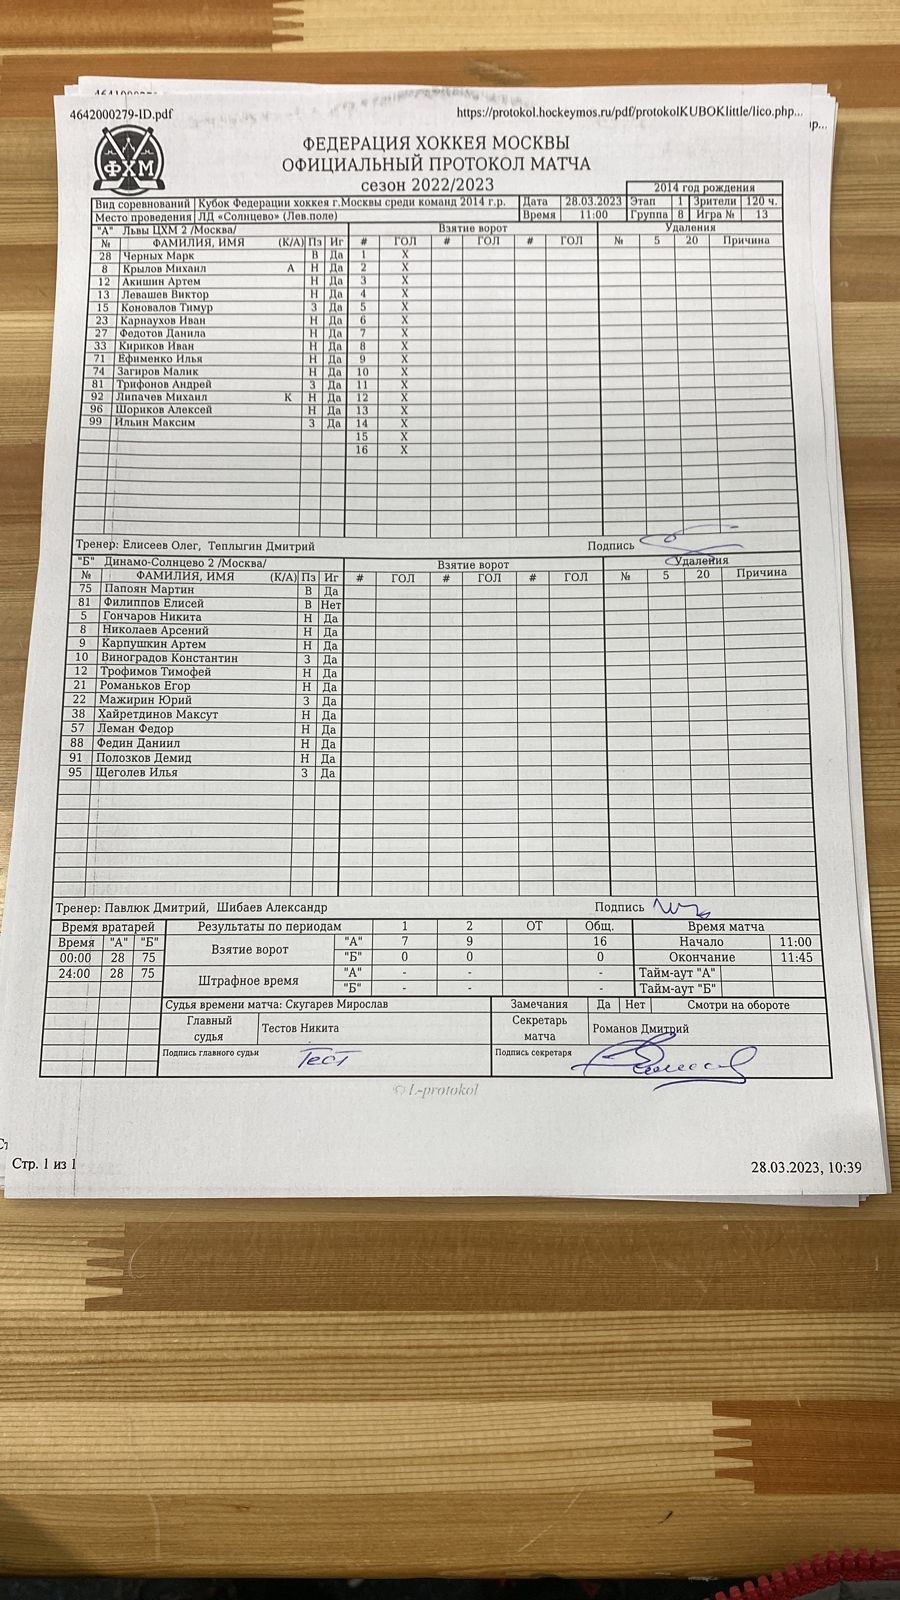 4642000279-ID.pdf https://protokol.hockeymos.ru/pdf/protokolKUBOKlittle/lico.php...
ФХМ
ФЕДЕРАЦИЯ ХОККЕЯ МОСКВЫ
ОФИЦИАЛЬНЫЙ ПРОТОКОЛ МАТЧА
сезон 2022/2023
2014 год рождения
Вид соревнований Кубок Федерации хоккея г.Москвы среди команд 2014 г.р. Дата 28.03.2023 Этап 1 Зрители 120 ч.
Место проведения ЛД «Солнцево» (Лев.поле) Время 11:00 Группа 8 Игра № 13
"А" Львы ЦХМ 2 /Москва/ Взятие ворот Удаления
№ ФАМИЛИЯ, ИМЯ (К/А) Пз Иг # ГОЛ # ГОЛ # ГОЛ № 5 20 Причина
28 Черных Марк В Да 1 X
8 Крылов Михаил А Н Да 2 X
12 Акишин Артем Н Да 3 X
13 Левашев Виктор Н Да 4 X
15 Коновалов Тимур З Да 5 X
23 Карнаухов Иван Н Да 6 X
27 Федотов Данила Н Да 7 X
33 Кириков Иван Н Да 8 X
71 Ефименко Илья Н Да 9 X
74 Загиров Малик Н Да 10 X
81 Трифонов Андрей З Да 11 X
92 Липачев Михаил К Н Да 12 X
96 Шориков Алексей Н Да 13 X
99 Ильин Максим З Да 14 X
15 X
16 X
Тренер: Елисеев Олег, Теплыгин Дмитрий Подпись
"Б" Динамо-Солнцево 2 /Москва/ Взятие ворот Удаления
№ ФАМИЛИЯ, ИМЯ (К/А) Пз Иг # ГОЛ # ГОЛ # ГОЛ № 5 20 Причина
75 Папоян Мартин В Да
81 Филиппов Елисей В Нет
5 Гончаров Никита Н Да
8 Николаев Арсений Н Да
9 Карпушкин Артем Н Да
10 Виноградов Константин З Да
12 Трофимов Тимофей Н Да
21 Романьков Егор Н Да
22 Мажирин Юрий З Да
38 Хайретдинов Максут Н Да
57 Леман Федор Н Да
88 Федин Даниил Н Да
91 Полозков Демид Н Да
95 Щеголев Илья З Да
Тренер: Павлюк Дмитрий, Шибаев Александр Подпись
Время вратарей Результаты по периодам 1 2 ОТ Общ. Время матча
Время "А" "Б" Взятие ворот "А" 7 9 16 Начало 11:00
00:00 28 75 "Б" 0 0 0 Окончание 11:45
24:00 28 75 Штрафное время "А" - - - Тайм-аут "А"
"Б" - - - Тайм-аут "Б"
Судья времени матча: Скугарев Мирослав Замечания Да Нет Смотри на обороте
Главный судья Тестов Никита Секретарь матча Романов Дмитрий
Подпись главного судьи Тест Подпись секретаря
© L-protokol
Стр. 1 из 1 28.03.2023, 10:39